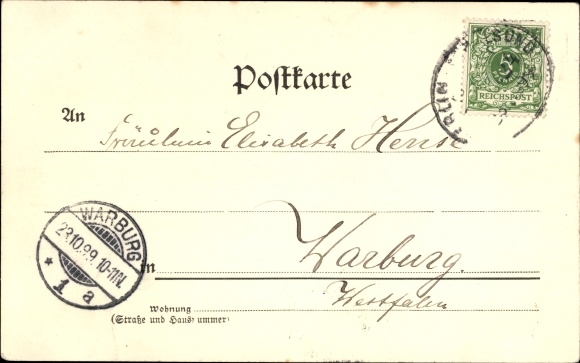 Postkarte
5
REICHSPOST
An
Fräulein Elisabeth Hense
WARBURG
23.10.99. 10-11N.
* 1 a
in Warburg.
Westfalen
Wohnung
(Straße und Hausnummer)